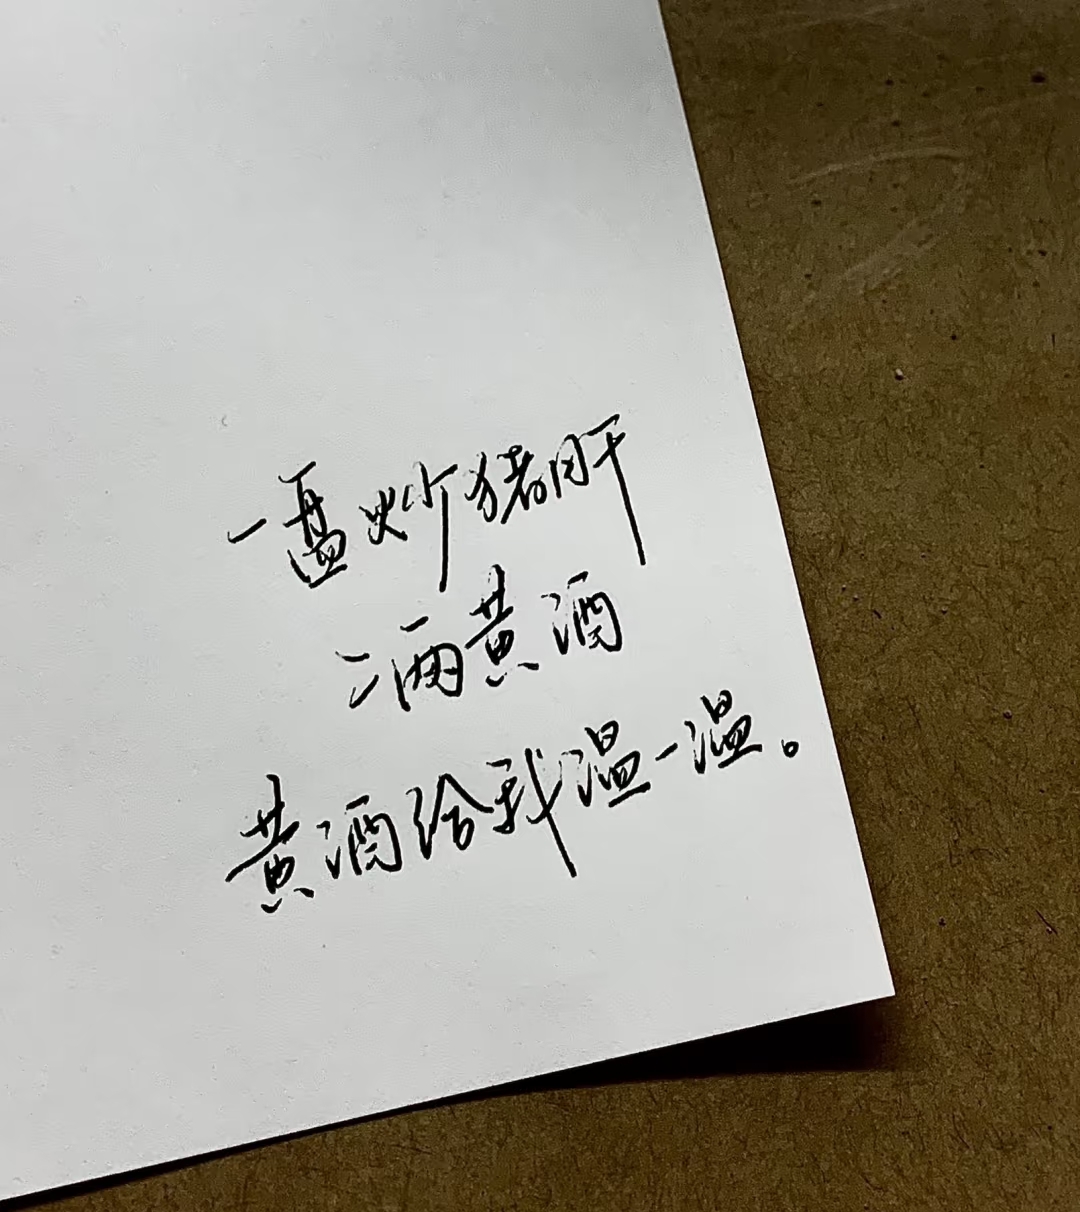 一盘炒猪肝
二两黄酒
黄酒给我温一温。